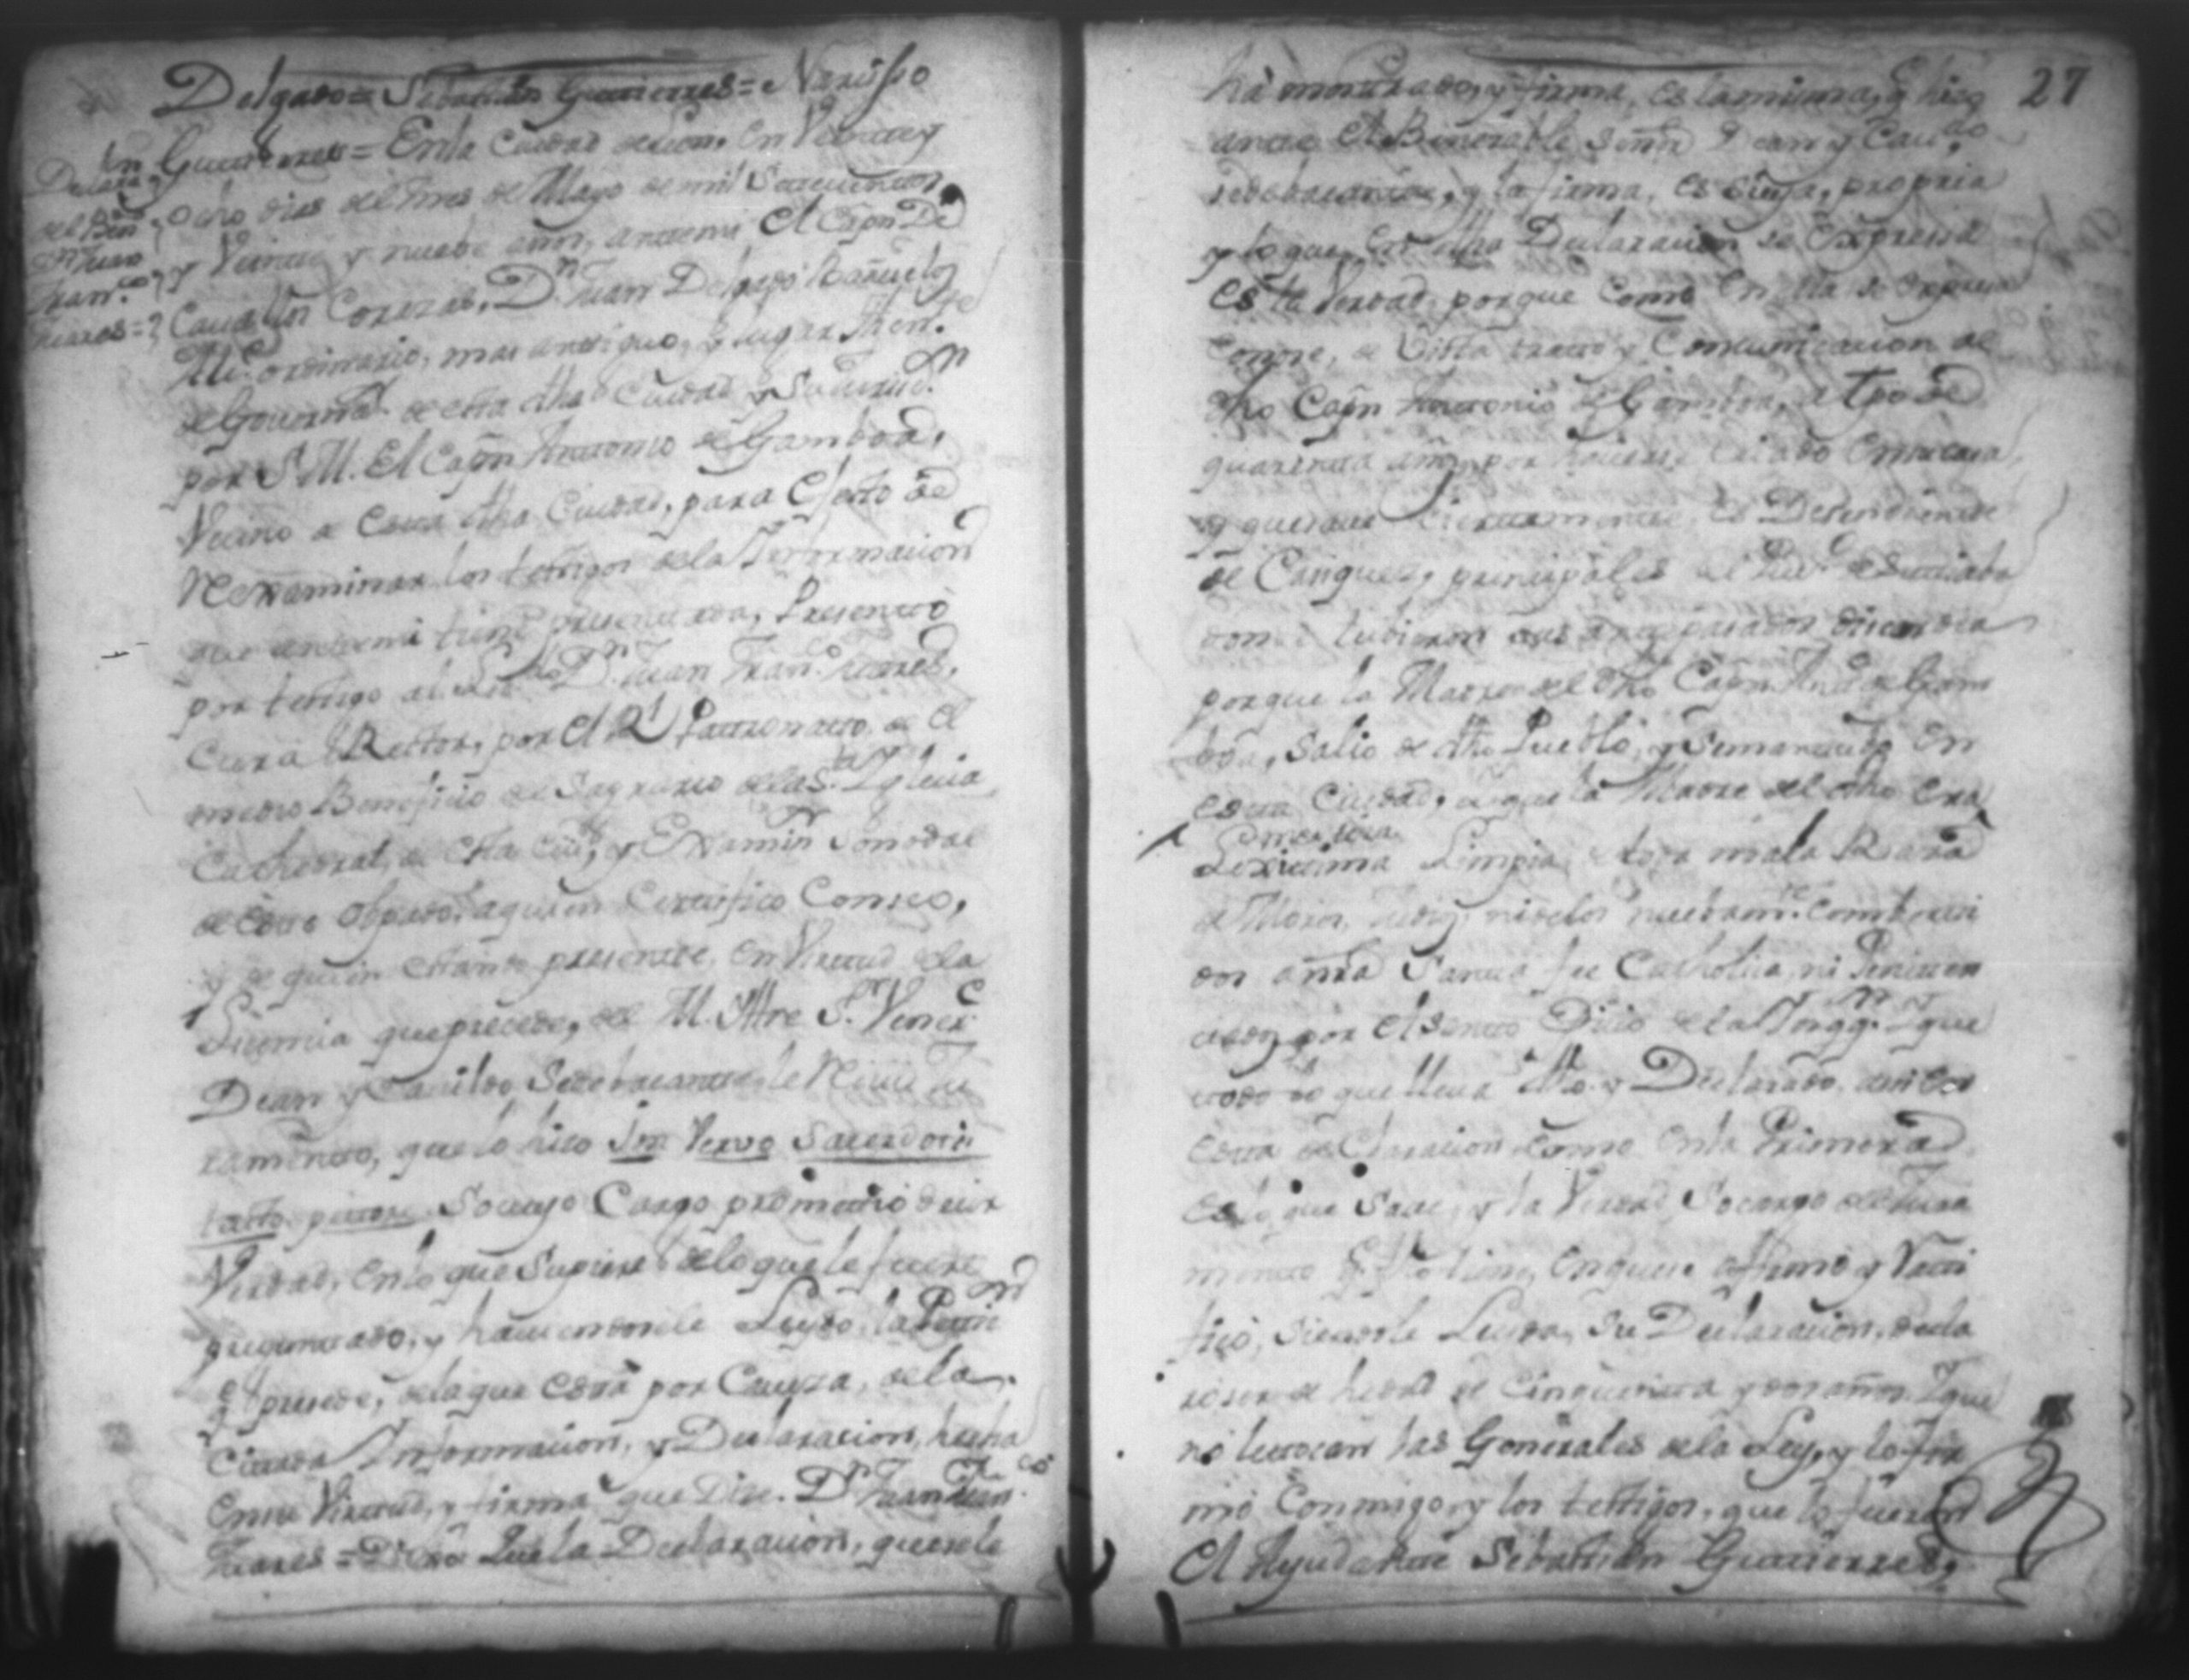 Delgado = Sebastian Gutierres = Narsisso
Gutierres = En la Ciudad de Leon, en Veinte y
Declara.on
del Ben.do
Dn Juan
Fran.co
Juares =
ocho dias del mes de Mayo de mil Setecientos,
y Veinte y nuebe años, antemi el Capn De
Cauallos Corazas, Dn Juan Delgado Bañuelos
Alc.e ordinario, mas antiguo, y lugar Then.te
de Gouernad.r de esta dha Ciudad y su Jurisd.n
por S. M. El Capn Antonio de Gamboa,
Vecino de esta dha Ciudad, para efecto de
Rexaminar los testigos de la Informacion
que antemi tiene presentada, Presentó
por testigo al Dn Juan Fran.co Juares,
Cura Rector, por el Rl Patronato de el
medio Beneficio del Sagrario de la S.ta Iglecia
Cathedral, de esta Ciud, y Examin.r Sinodal
de este Obpado, a quien Certifico Conosco,
y de quien estando presente, en Virtud de la
Licencia que precede, del M. Iltre S.r Vener.e
Dean y Cauildo, Sedebacante, le Reciui Ju
ramento, que lo hiso Im Vervo Sacerdotis
tacto pectore Socuyo Cargo prometio decir
Verdad, en lo que Supiere de lo que le fuere
preguntado, y hauiendosele Leydo, la Peticion
q.e precede, de la que está por Caueza, de la
Citada Informacion, y Declaracion, hecha
en su Virtud, y firma que Dice. Dn Juan Fran.co
Juares = Dixo Que la Declaracion, que se le
27
há mostrado, y firma, es la misma, q.e hiso
ante el Benerable Señor Dean y Cau.do
sedebacante, y la firma, es Suya, propria
y lo que, en dha Declaracion se Expresa
es la Verdad, porque como en ella se expresa
conoce, de Vista trato y Comunicacion al
dho Capn Antonio de Gamboa, de tpo de
quarenta años, por hauerse criado en su casa,
y que saue Ciertamente, es Desendiente
de Casiques, principales del Pue.o de Sutiaba
donde tubieron sus antepasados
porque la Madre del dho Capn Ant.o de Gam
boa, Salio de dho Pueblo, y Se En
esta Ciudad, a que la Madre del dho era
Mestisa
Lexitima Limpia de toda mala Raza
de Moros, Judios, ni de los nuebam.te combersi
dos a nra Santa fee Catholica, ni Peniten
ciados por el Santo Oficio de la Inqq.n Y que
todo lo que lleua dho y Declarado, asi en
esta declaracion como en la Primera
es lo que Saue, y la Verdad Socargo del Jura
mento q.e fho tiene, en que se afirmó y Ratti
ficó, siendole Leyda, su Declaracion, decla
ro ser de hedad de Cinquenta y dos años Y que
no le tocan las Generales de la Ley, y lo fir
mó Conmigo y los testigos, que lo fueron
El Ayudante Sebastian Gutierres,